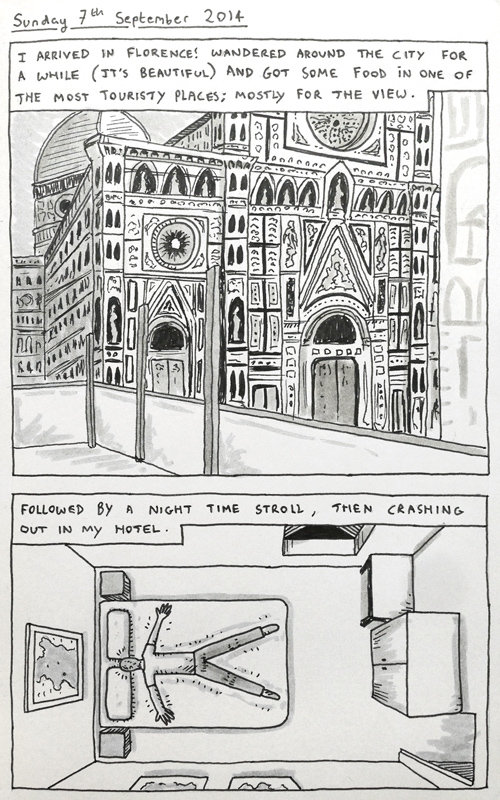 Sunday 7th September 2014
I ARRIVED IN FLORENCE! WANDERED AROUND THE CITY FOR
A WHILE (IT'S BEAUTIFUL) AND GOT SOME FOOD IN ONE OF
THE MOST TOURISTY PLACES; MOSTLY FOR THE VIEW.
FOLLOWED BY A NIGHT TIME STROLL, THEN CRASHING
OUT IN MY HOTEL.